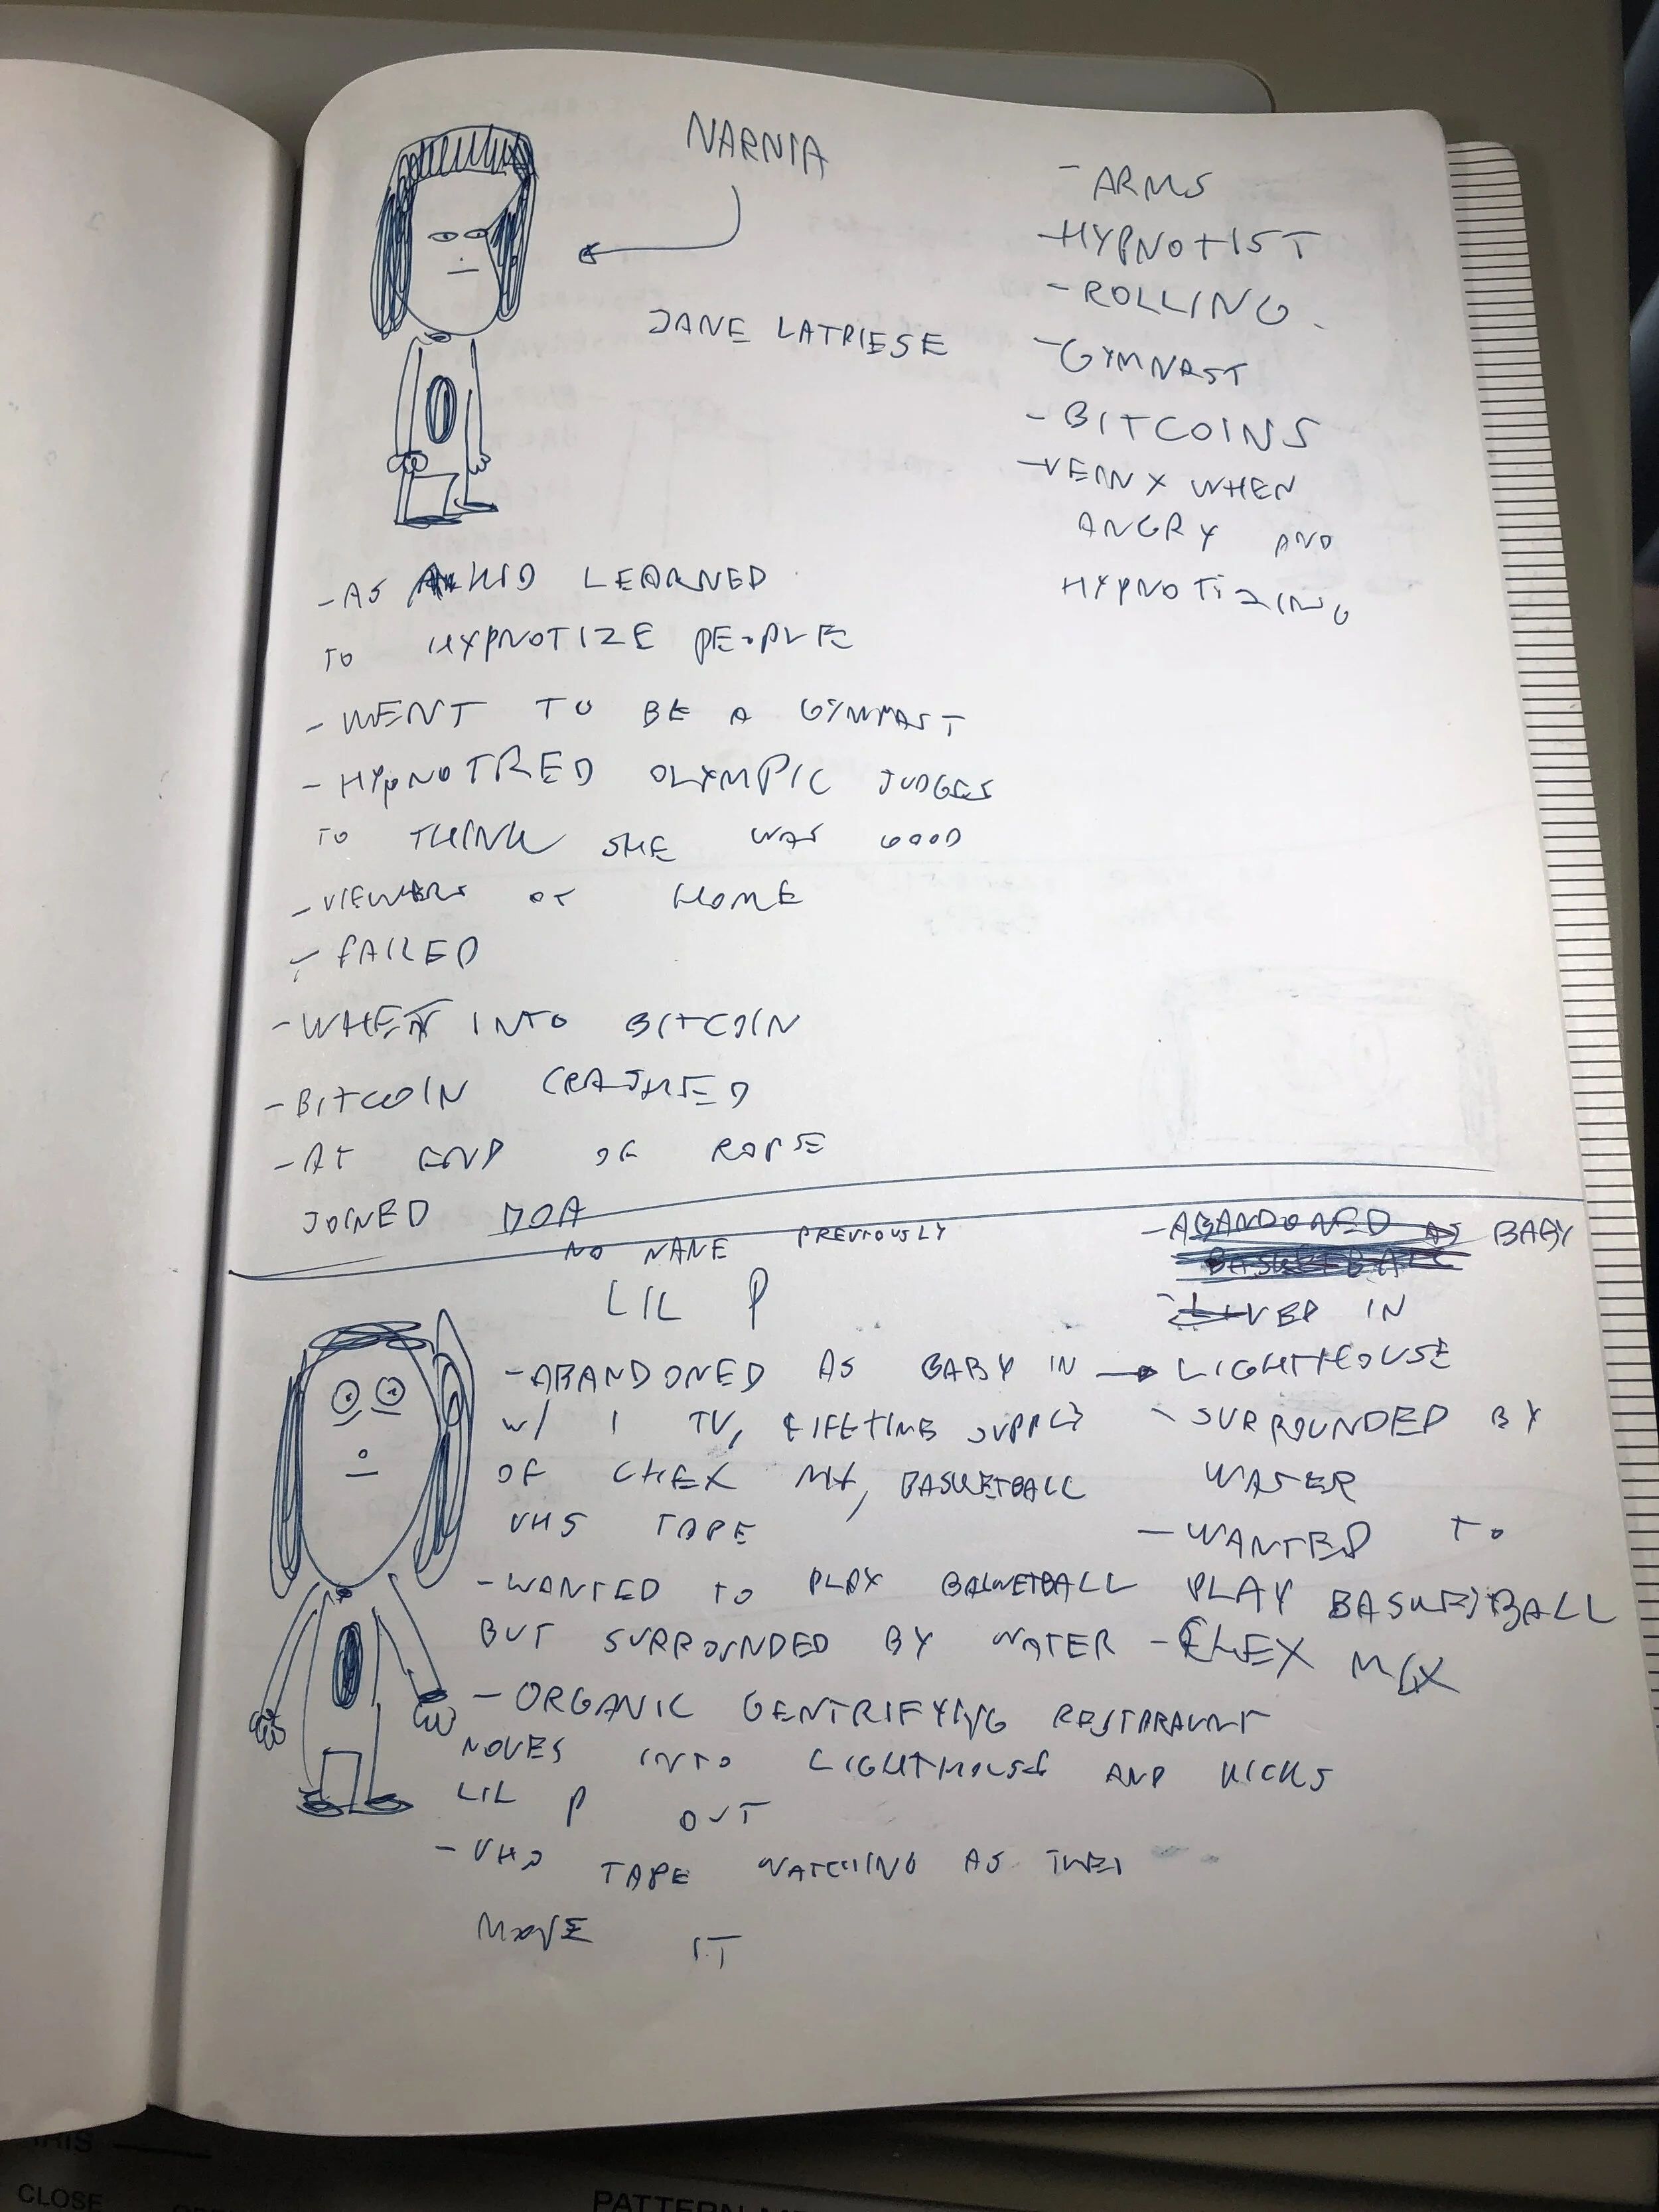 NARNIA
JANE LATRIESE
- ARMS
- HYPNOTIST
- ROLLING
- GYMNAST
- BITCOINS
- VEINY WHEN
ANGRY AND
HYPNOTIZING
- AS A KID LEARNED
TO HYPNOTIZE PEOPLE
- WENT TO BE A GYMNAST
- HYPNOTIZED OLYMPIC JUDGES
TO THINK SHE WAS GOOD
- VIEWERS AT HOME
- FAILED
- WHEN INTO BITCOIN
- BITCOIN CRASHED
- AT END OF ROPE
JOINED DOA
NO NAME PREVIOUSLY
LIL P
- ABANDONED AS BABY IN
W/ 1 TV, LIFETIME SUPPLY
OF CHEX MIX, BASKETBALL
VHS TAPE
- WANTED TO PLAY BASKETBALL
BUT SURROUNDED BY WATER
- ORGANIC GENTRIFYING RESTARAUNT
MOVES INTO LIGHTHOUSE AND KICKS
LIL P OUT
- VHS TAPE WATCHING AS THEY
MOVE IT
- ABANDONED AS BABY
BASKETBALL
- LIVED IN
LIGHTHOUSE
- SURROUNDED BY
WATER
- WANTED TO
PLAY BASKETBALL
- CHEX MIX
PATTERN
CLOSE